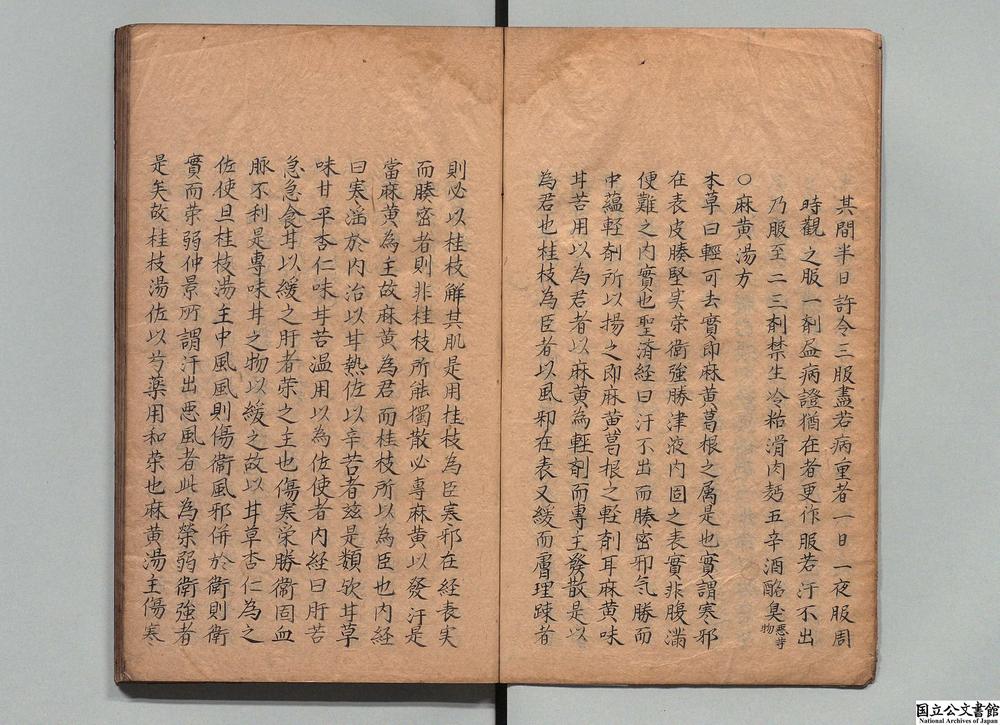 其間半日許令三服盡若病重者一日一夜服周
時觀之服一剤盡病證猶在者更作服若汗不出
乃服至二三剤禁生冷粘滑肉麪五辛酒酪臭悪等物
○麻黄湯方
本草曰軽可去實即麻黄葛根之属是也實謂寒邪
在表皮腠堅実荣衛強勝津液内固之表實非腹満
便難之内實也聖済経曰汗不出而腠密邪气勝而
中蘊軽剤所以揚之即麻黄葛根之軽剤耳麻黄味
甘苦用以為君者以麻黄為軽剤而專主發散是以
為君也桂枝為臣者以風邪在表又緩而膚理踈者
則必以桂枝解其肌是用桂枝為臣寒邪在経表実
而腠密者則非桂枝所能獨散必專麻黄以發汗是
當麻黄為主故麻黄為君而桂枝所以為臣也内経
曰寒滛於内治以甘熱佐以辛苦者玆是類欤甘草
味甘平杏仁味甘苦温用以為佐使者内経曰肝苦
急急食甘以緩之肝者荣之主也傷寒栄勝衛固血
脉不利是專味甘之物以緩之故以甘草杏仁為之
佐使且桂枝湯主中風風則傷衛風邪併於衛則衛
實而荣弱仲景所謂汗出悪風者此為榮弱衛強者
是矣故桂枝湯佐以芍藥用和荣也麻黄湯主傷寒
国立公文書館
National Archives of Japan